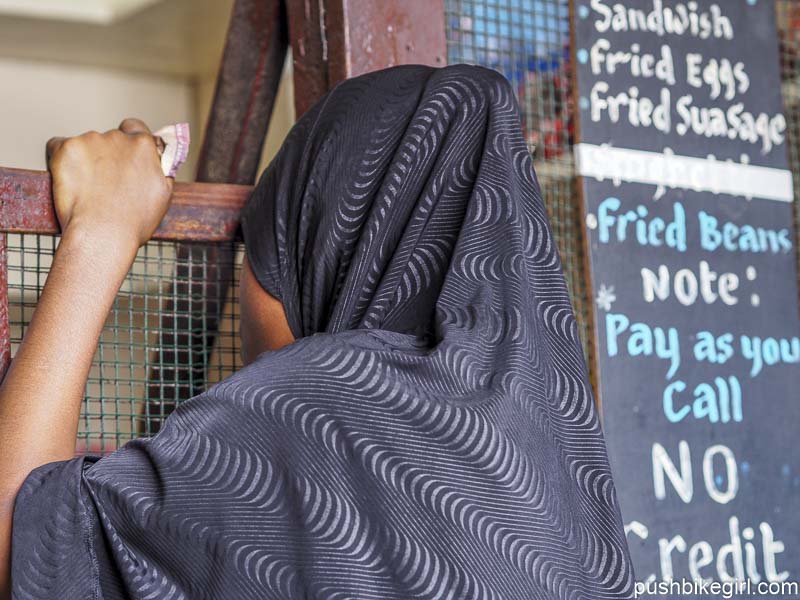 Sandwish
Fried Eggs
Fried Suasage
Fried Beans
Note:
Pay as you
Call
NO
Credit
pushbikegirl.com